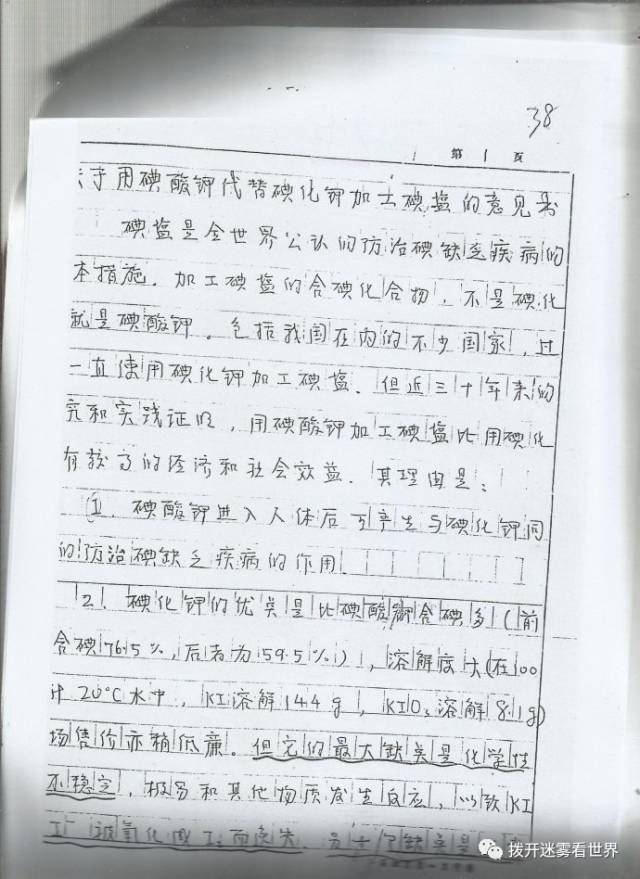 38
第1页
于用碘酸钾代替碘化钾加工碘盐的意见书
碘盐是全世界公认的防治碘缺乏疾病的
本措施.加工碘盐的含碘化合物,不是碘化
就是碘酸钾。包括我国在内的不少国家,过
一直使用碘化钾加工碘盐.但近三十年来的
究和实践证明,用碘酸钾加工碘盐比用碘化
有较高的经济和社会效益.其理由是:
1.碘酸钾进入人体后可产生与碘化钾同
的防治碘缺乏疾病的作用.
2.碘化钾的优点是比碘酸钾含碘多(前
含碘76.5%,后者为59.5%),溶解度大(在100
20℃水中,KI溶解144g,KIO₃溶解8.1g)
场售价亦稍低廉。但它的最大缺点是化学性
不稳定,极易和其他物质发生反应,以致KI
被氧化成I₂而逸失.为了
拨开迷雾看世界